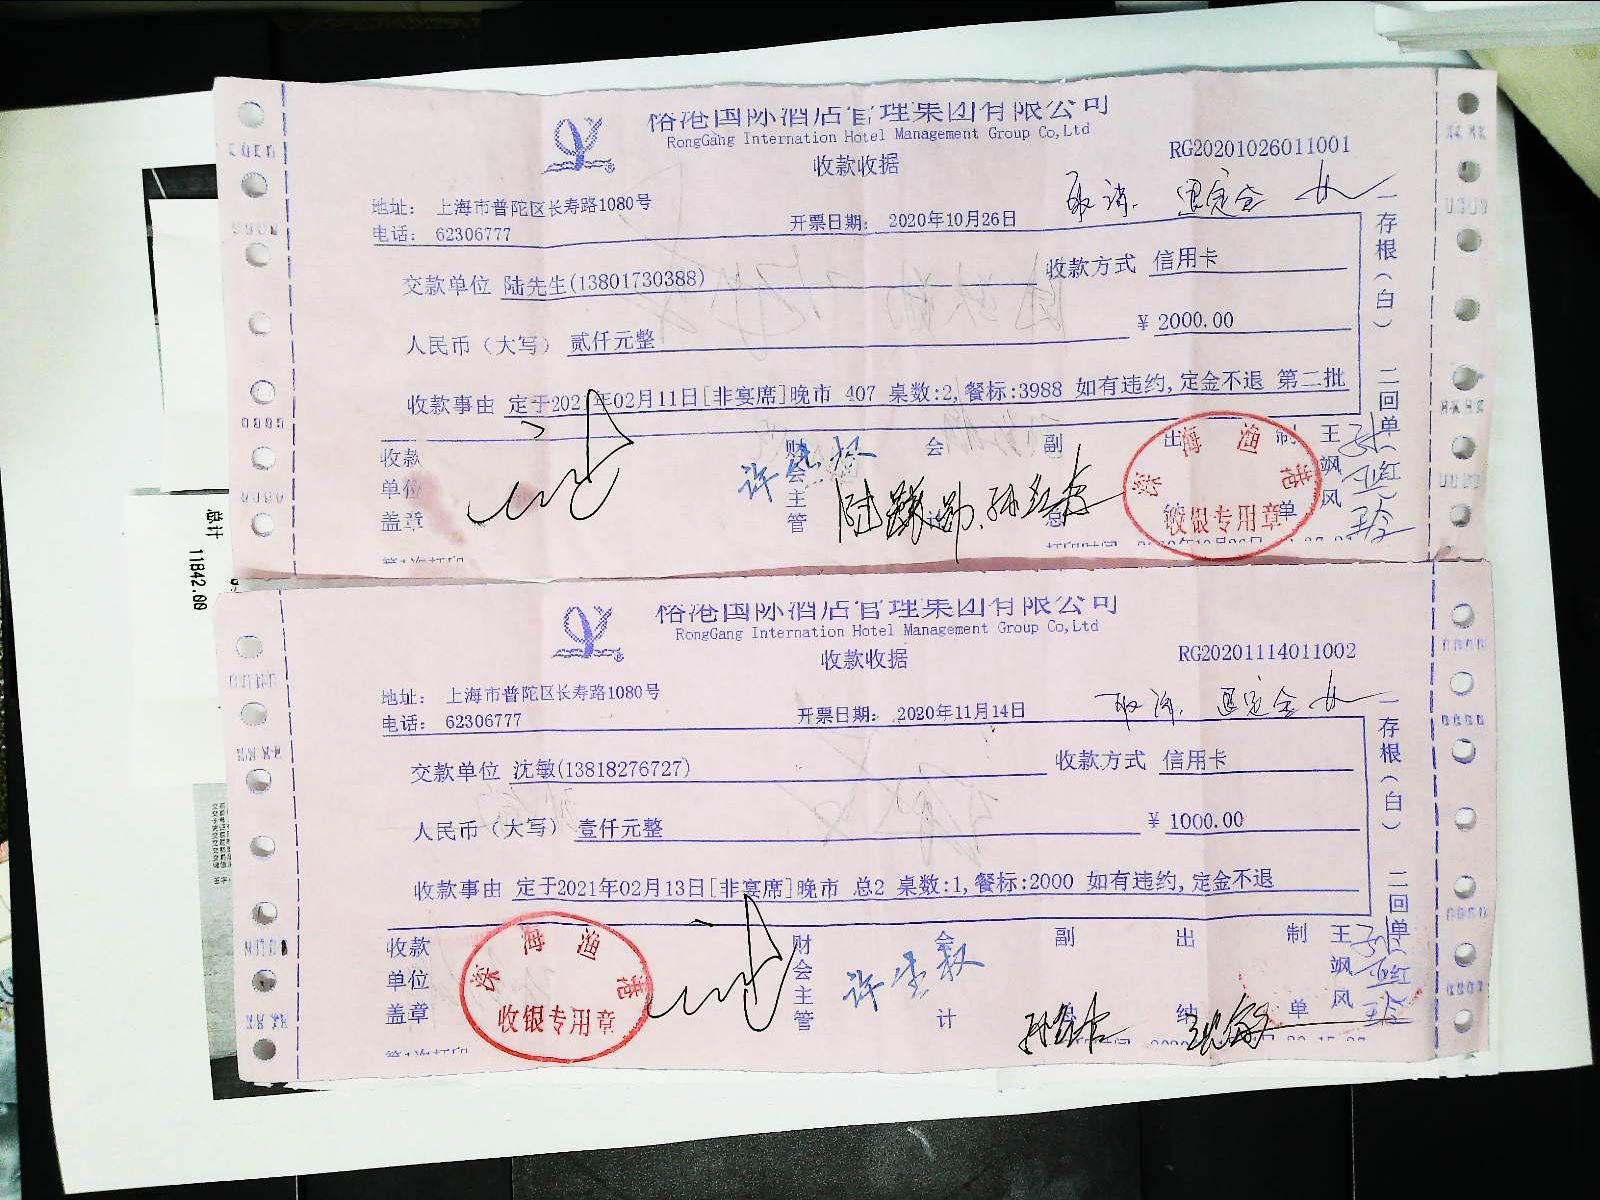 俗港国际酒店管理集团有限公司
RongGang Internation Hotel Management Group Co,Ltd
收款收据
RG20201026011001
取消. 退定金
地址: 上海市普陀区长寿路1080号
电话: 62306777
开票日期: 2020年10月26日
交款单位 陆先生(13801730388)
收款方式 信用卡
人民币（大写） 贰仟元整
¥ 2000.00
收款事由 定于2021年02月11日[非宴席]晚市 407 桌数:2,餐标:3988 如有违约,定金不退 第二批
收款单位盖章
财会主管
会计
副总
出纳
制单
王飒风
深海渔港
收银专用章
一存根(白) 二回单 红
总计
11842.00
俗港国际酒店管理集团有限公司
RongGang Internation Hotel Management Group Co,Ltd
收款收据
RG20201114011002
取消. 退定金
地址: 上海市普陀区长寿路1080号
电话: 62306777
开票日期: 2020年11月14日
交款单位 沈敏(13818276727)
收款方式 信用卡
人民币（大写） 壹仟元整
¥ 1000.00
收款事由 定于2021年02月13日[非宴席]晚市 总2 桌数:1,餐标:2000 如有违约,定金不退
收款单位盖章
深海渔港
收银专用章
财会主管
会计
副总
出纳
制单
王飒风
一存根(白) 二回单 红